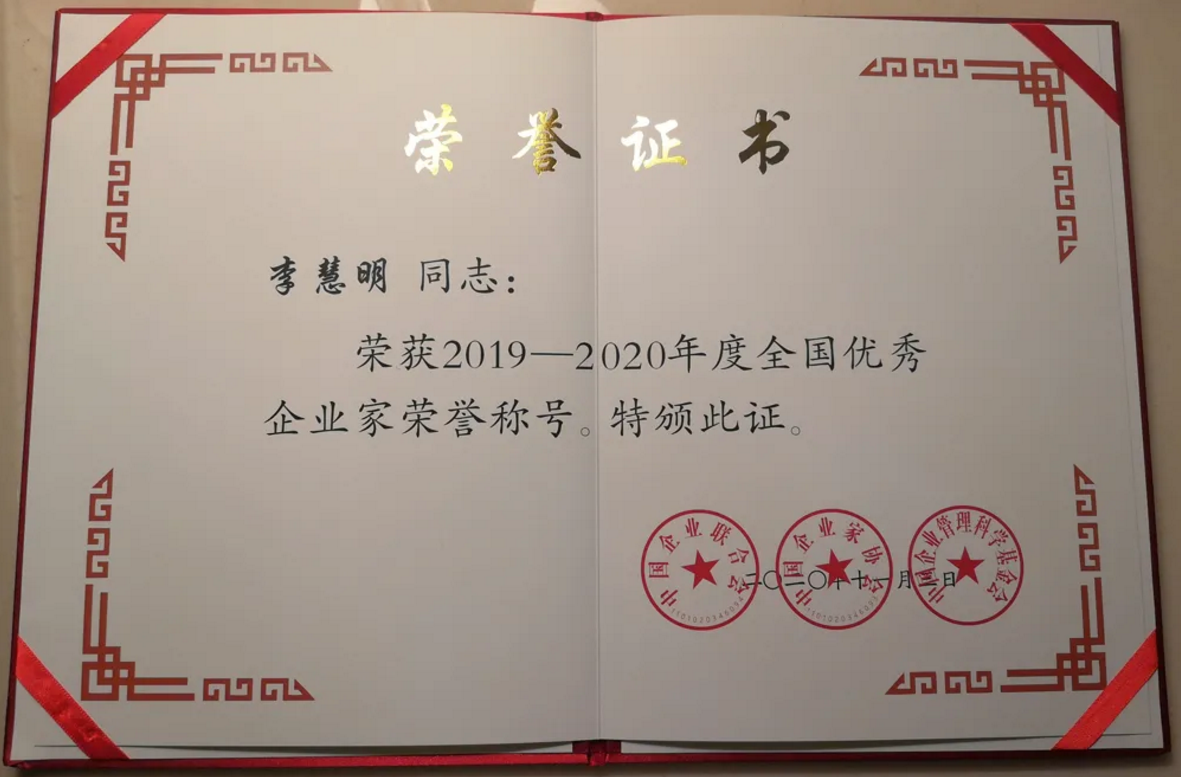 荣誉证书
李慧明 同志：
荣获2019—2020年度全国优秀
企业家荣誉称号。特颁此证。
中国企业联合会
中国企业家协会
中国企业管理科学基金会
二〇二〇年十一月 日